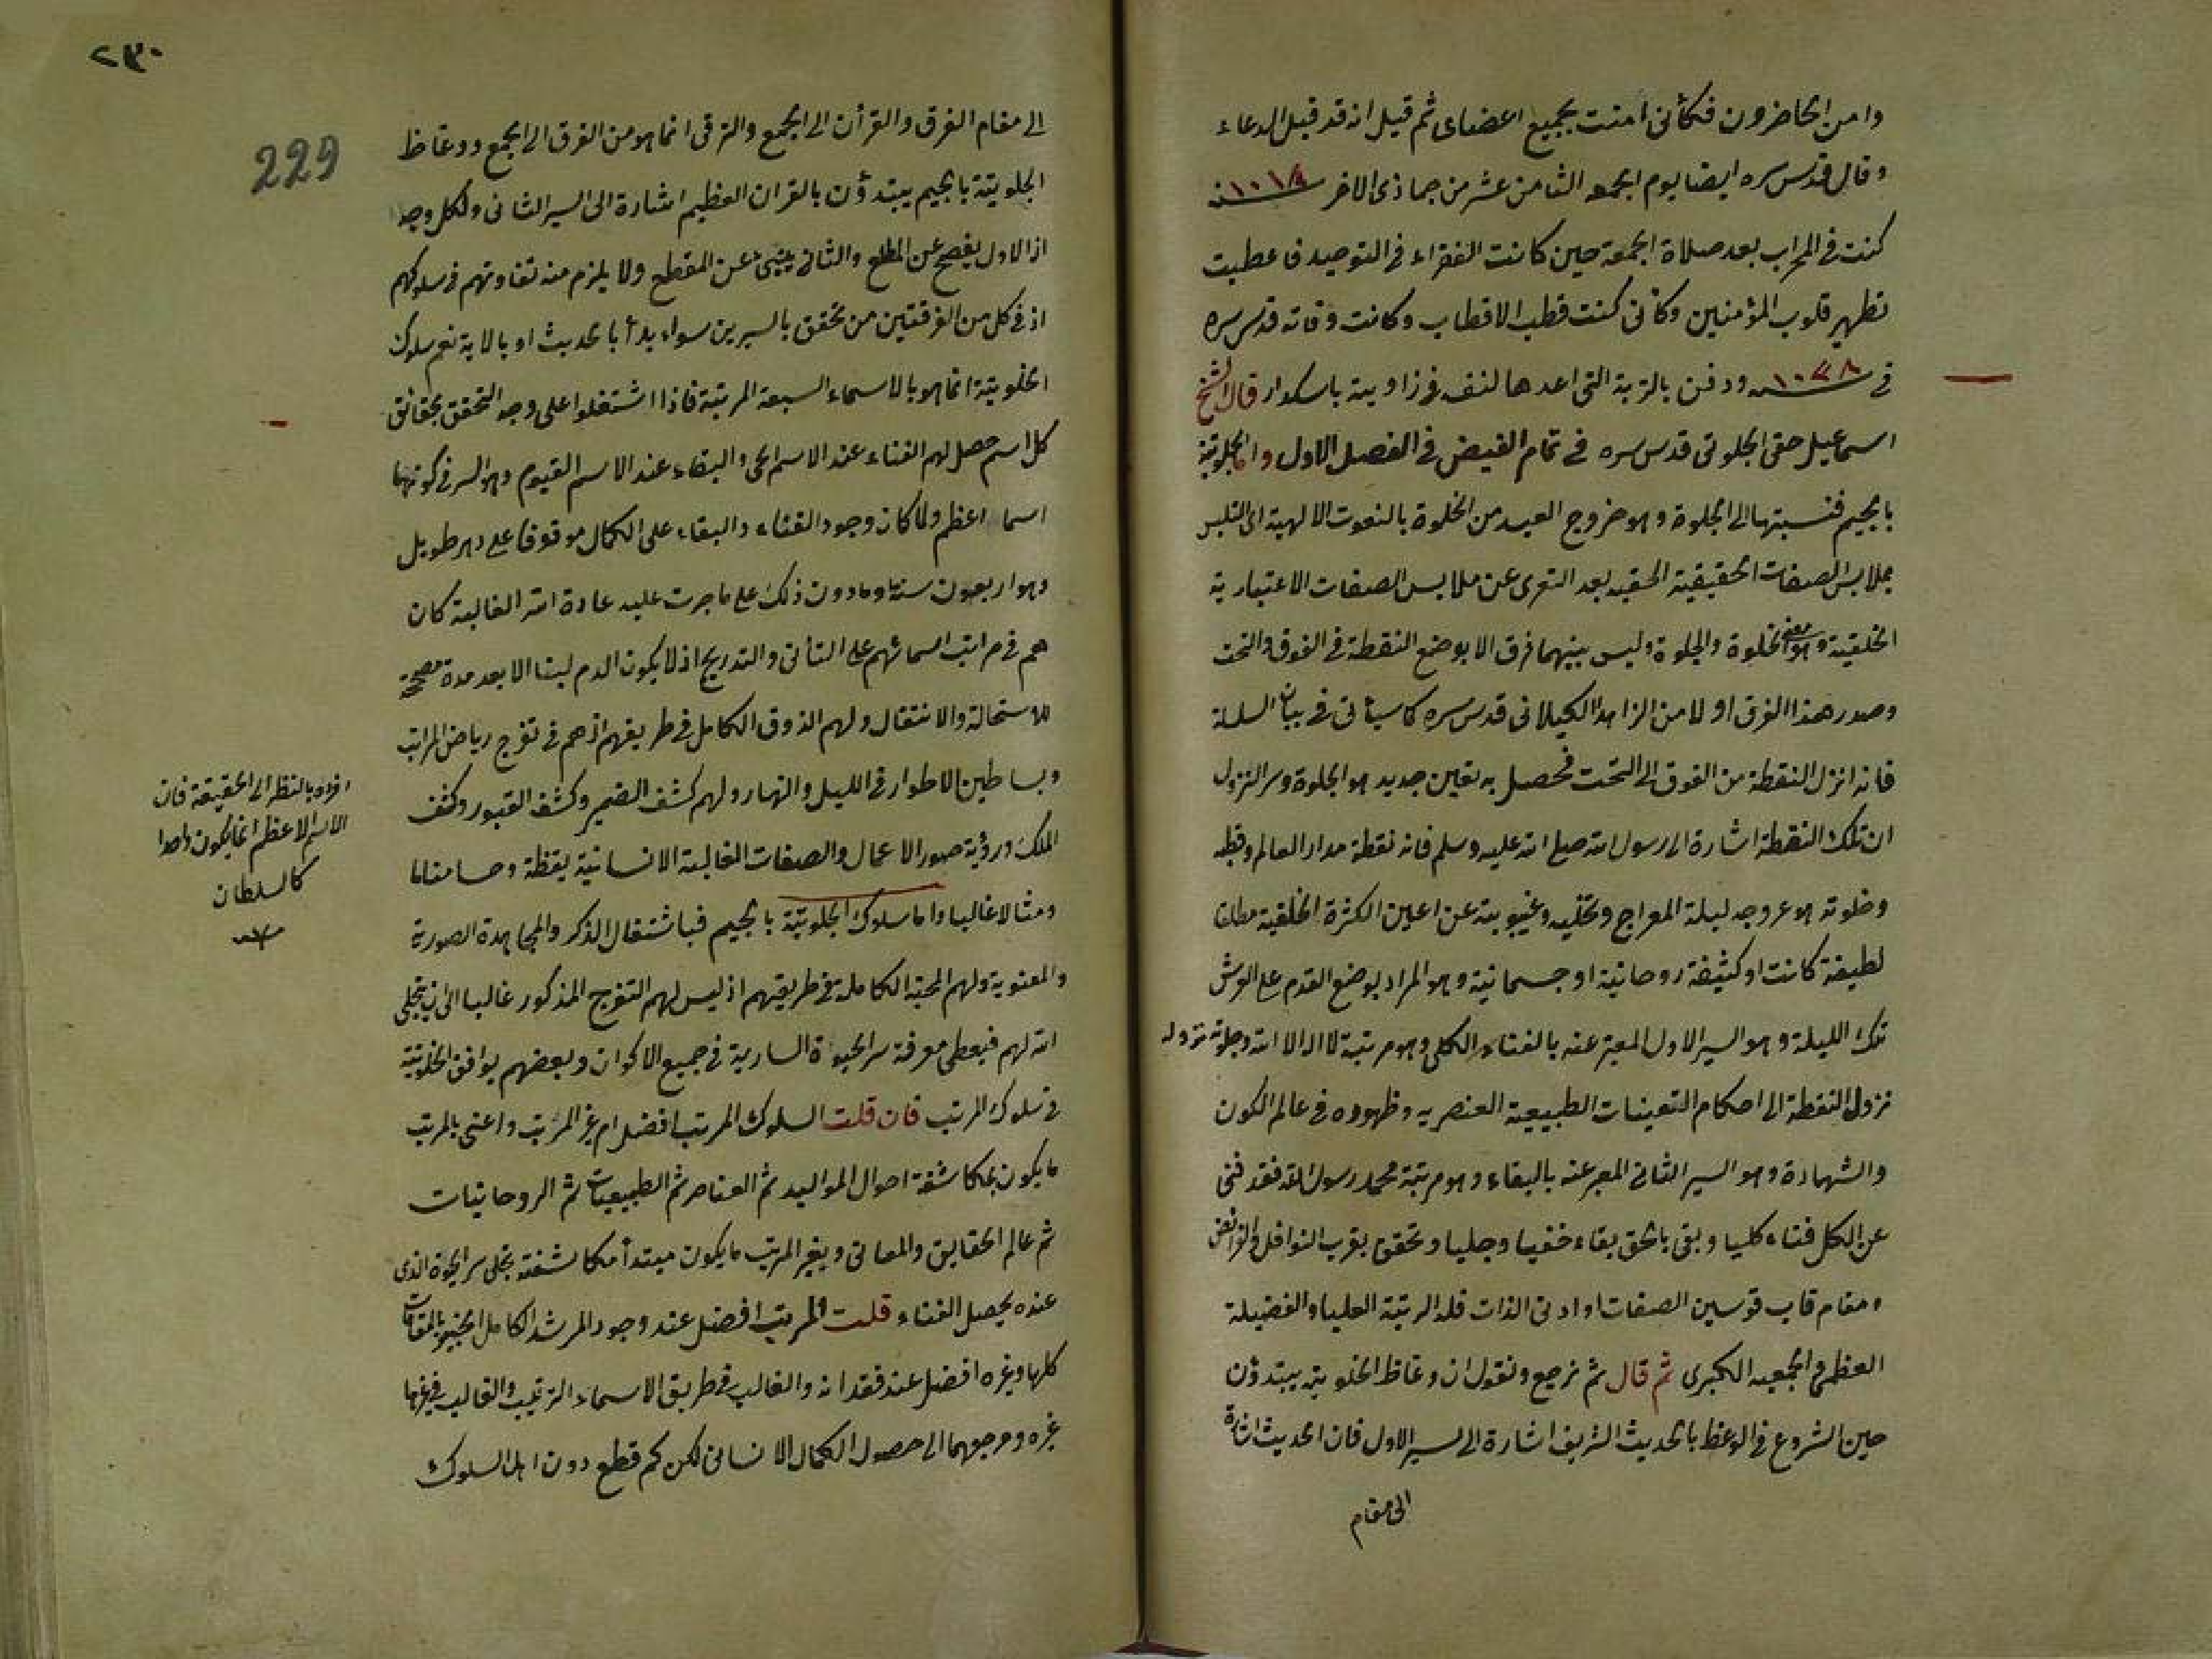 وامن الحاضرون فكأنى امنت بجميع اعضاى ثم قيل انه قد قبل الدعاء
وقال قدس سره ايضا يوم الجمعه الثامن عشر من جماذى الاخر سنه
كنت فى المحراب بعد صلاة الجمعة حين كانت الفقراء فى التوحيد فاعطيت
تطهير قلوب المؤمنين وكأنى كنت قطب الاقطاب وكانت وفاته قدس سره
فى سنه ١٠٣٨ ودفن بالتربة التى اعدها لنفسه فى زاويته باسكدار قال الشيخ
اسماعيل حقى الجلوتى قدس سره فى تمام الفيض فى الفصل الاول واما الجلوتية
بالجيم فنسبتها الى الجلوة وهو خروج العبد من الخلوة بالنعوت الالهية اى التلبس
بملابس الصفات الحقيقية الحقيه بعد التعرى عن ملابس الصفات الاعتبارية
الخلقية وهو معنى الخلوة والجلوة وليس بينهما فرق الا بوضع النقطة فى الفوق والتحت
وصدر هذا الفرق اولا من الزاهد الكيلانى قدس سره كما سيأتى فى بيان السلسلة
فانه انزل النقطة من الفوق الى التحت فحصل به تعين جديد هو الجلوة وسر النزول
ان تلك النقطة اشارة الى رسول الله صلى الله عليه وسلم فانه نقطة مدار العالم وقطبه
وخلوته هو عروجه ليلة المعراج وتخليه وغيبوبيته عن اعين الكثرة الخلقية مطلقا
لطيفة كانت او كثيفة روحانية او جسمانية وهو المراد بوضع القدم على العرش
تلك الليلة وهو السير الاول المعبر عنه بالفناء الكلى وهو مرتبة لا اله الا الله وجلوته نزوله
نزول النقطة الى احكام التعينات الطبيعية العنصريه وظهوره فى عالم الكون
والشهادة وهو السير الثانى المعبر عنه بالبقاء وهو مرتبة محمد رسول الله فقد فنى
عن الكل فناء كليا وبقى بالحق بقاء خفيا وجليا وتحقق بقرب النوافل والفرائض
ومقام قاب قوسين الصفات او ادنى الذات فله الرتبة العليا والفضيلة
العظمى والجمعيه الكبرى ثم قال ثم نرجع ونقول ان وعاظ الخلوتيه يبتدؤن
حين الشروع فى الوعظ بالحديث الشريف اشارة الى السير الاول فان الحديث اشارة
الى مقام
٢٣٠
229
الى مقام الفرق والقرأن الى الجمع والترقى انما هو من الفرق الى الجمع ووعاظ
الجلوتية بالجيم يبتدؤن بالقران العظيم اشارة الى السير الثانى ولكل وجه
اذ الاول يفصح عن المطلع والثانى ينبئ عن المقطع ولا يلزم منه تفاوتهم فى سلوكهم
اذ فى كل من الفرقتين من تحقق بالسيرين سواء بدأ بالحديث او بالاية نعم سلوك
الخلوتية انما هو بالاسماء السبعة المرتبة فاذا اشتغلوا على وجه التحقق بحقائق
كل اسم حصل لهم الفناء عند الاسم الحى والبقاء عند الاسم القيوم وهو السر فى كونهما
اسما اعظم ولما كان وجود الفناء والبقاء على الكمال موقوفا على دهر طويل
وهو اربعون سنة وما دون ذلك على ما جرت عليه عادة الله الغالبة كان
هم فى مراتب اسمائهم على التأنى والتدريج اذ لا يكون الدم لبنا الا بعد مدة مصححة
للاستحالة والانتقال ولهم الذوق الكامل فى طريقهم اذ هم فى تفرج رياض المراتب
وبساطين الاطوار فى الليل والنهار ولهم كشف الضمير وكشف القبور وكشف
الملك ورؤية صور الاعمال والصفات الغالبة الانسانية يقظة وحسا مناما
ومثالا غالبا واما سلوك الجلوتية بالجيم فباشتغال الذكر والمجاهدة الصورية
والمعنوية ولهم المحبة الكاملة فى طريقهم اذ ليس لهم التفرج المذكور غالبا الى ان يتجلى
الله لهم فيعطى معرفة سر الحيوة السارية فى جميع الاكوان وبعضهم يوافق الخلوتية
فى سلوك المرتب فان قلت السلوك المرتب افضل ام غير المرتب واعنى بالمرتب
ما يكون بمكاشفة احوال المواليد ثم العناصر ثم الطبيعيات ثم الروحانيات
ثم عالم الحقايق والمعانى وبغير المرتب ما يكون مبتدأ مكاشفته بتجلى سر الحيوة الذى
عنده يحصل الفناء قلت المرتب افضل عند وجود المرشد الكامل الخبير بالمقامات
كلها وغيره افضل عند فقدانه والغالب فى طريق الاسماء الترتيب والغالب فى غيرها
غيره ومرجعهما الى حصول الكمال الانسانى لكن كم قطع دون اهل السلوك
افراده بالنظر الى الحقيقة فان
الاسم الاعظم انما يكون واحدا
كالسلطان
منه